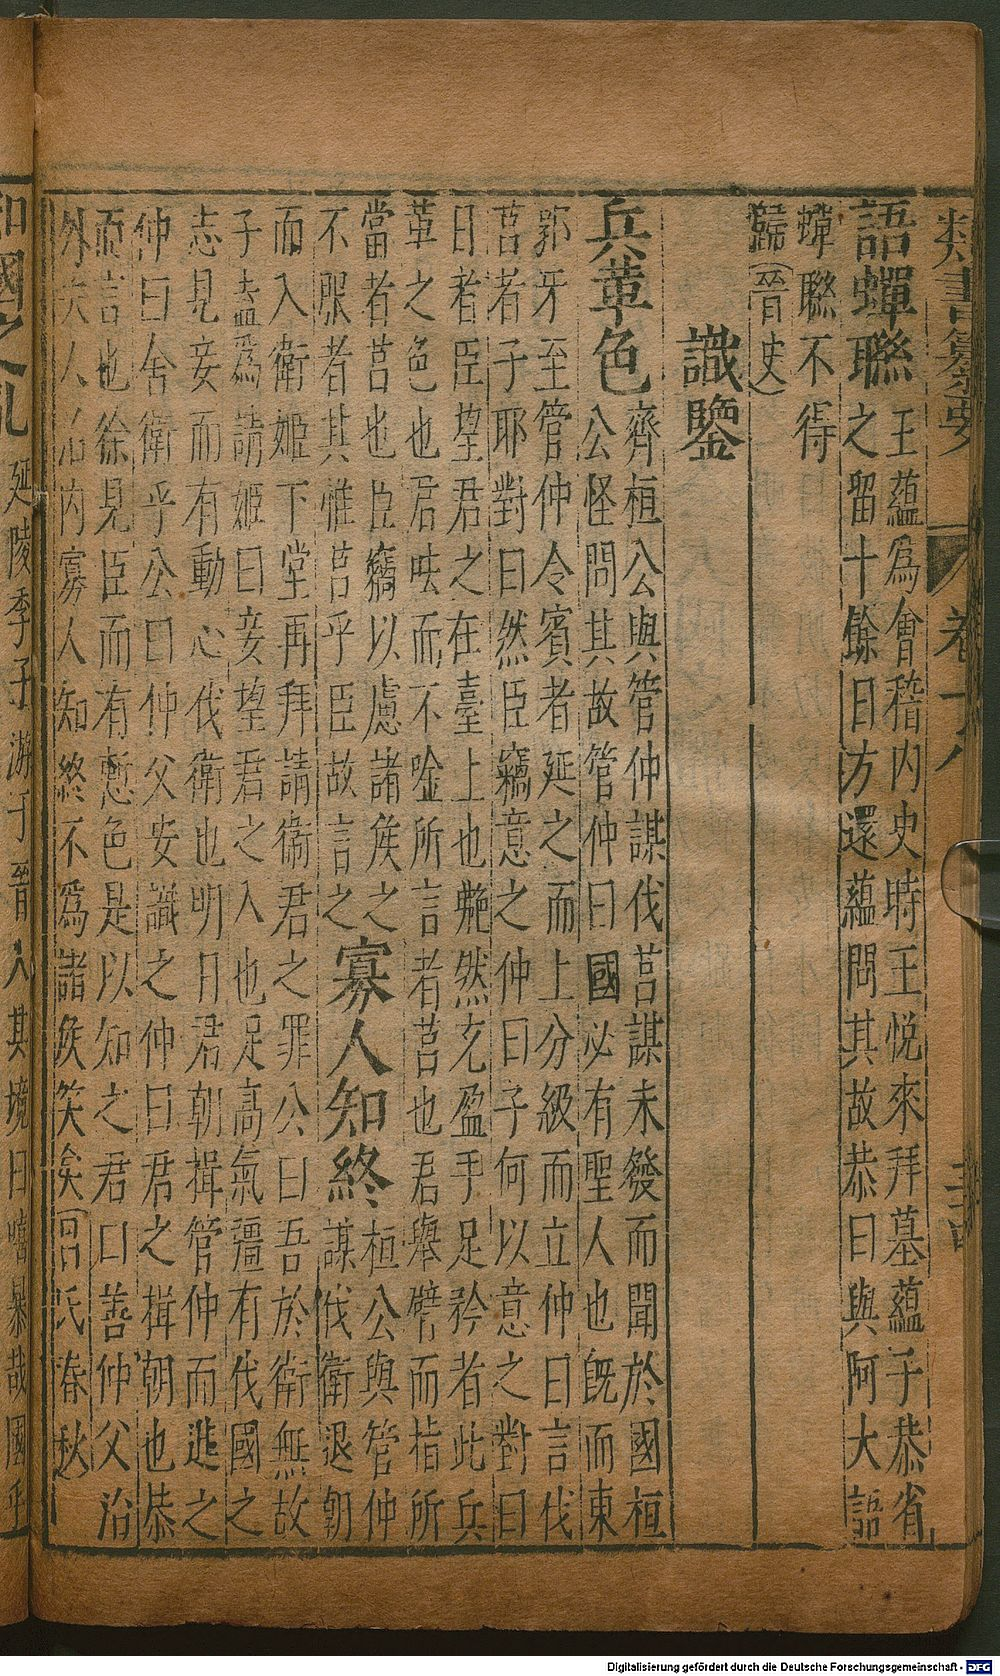 類書纂要 卷十八 三
語蟬聯
王蘊為會稽內史時王悅來拜墓蘊子恭省
之留十餘日方還蘊問其故恭曰與阿大語
蟬聯不得
歸(晉史)
識鑒
兵革色
齊桓公與管仲謀伐莒謀未發而聞於國桓
公怪問其故管仲曰國必有聖人也旣而東
郭牙至管仲令賓者延之而上分級而立仲曰言伐
莒者子耶對曰然臣竊意之仲曰子何以意之對曰
日者臣望君之在臺上也艴然充盈手足矜者此兵
革之色也君呿而不唫所言者莒也君舉臂而指所
當者莒也臣竊以慮諸侯之
不服者其惟莒乎臣故言之
寡人知終
桓公與管仲
謀伐衛退朝
而入衛姬下堂再拜請衛君之罪公曰吾於衛無故
子盍為請姬曰妾望君之入也足高氣彊有伐國之
志見妾而有動心伐衛也明日君朝揖管仲而進之
仲曰舍衛乎公曰仲父安識之仲曰君之揖朝也恭
而言也徐見臣而有慙色是以知之君曰善仲父治
外夫人治內寡人知終不為諸侯笑矣(呂氏春秋)
和國之亂
延陵季子游于晉入其境曰嘻暴哉國乎
Digitalisierung gefördert durch die Deutsche Forschungsgemeinschaft - DFG